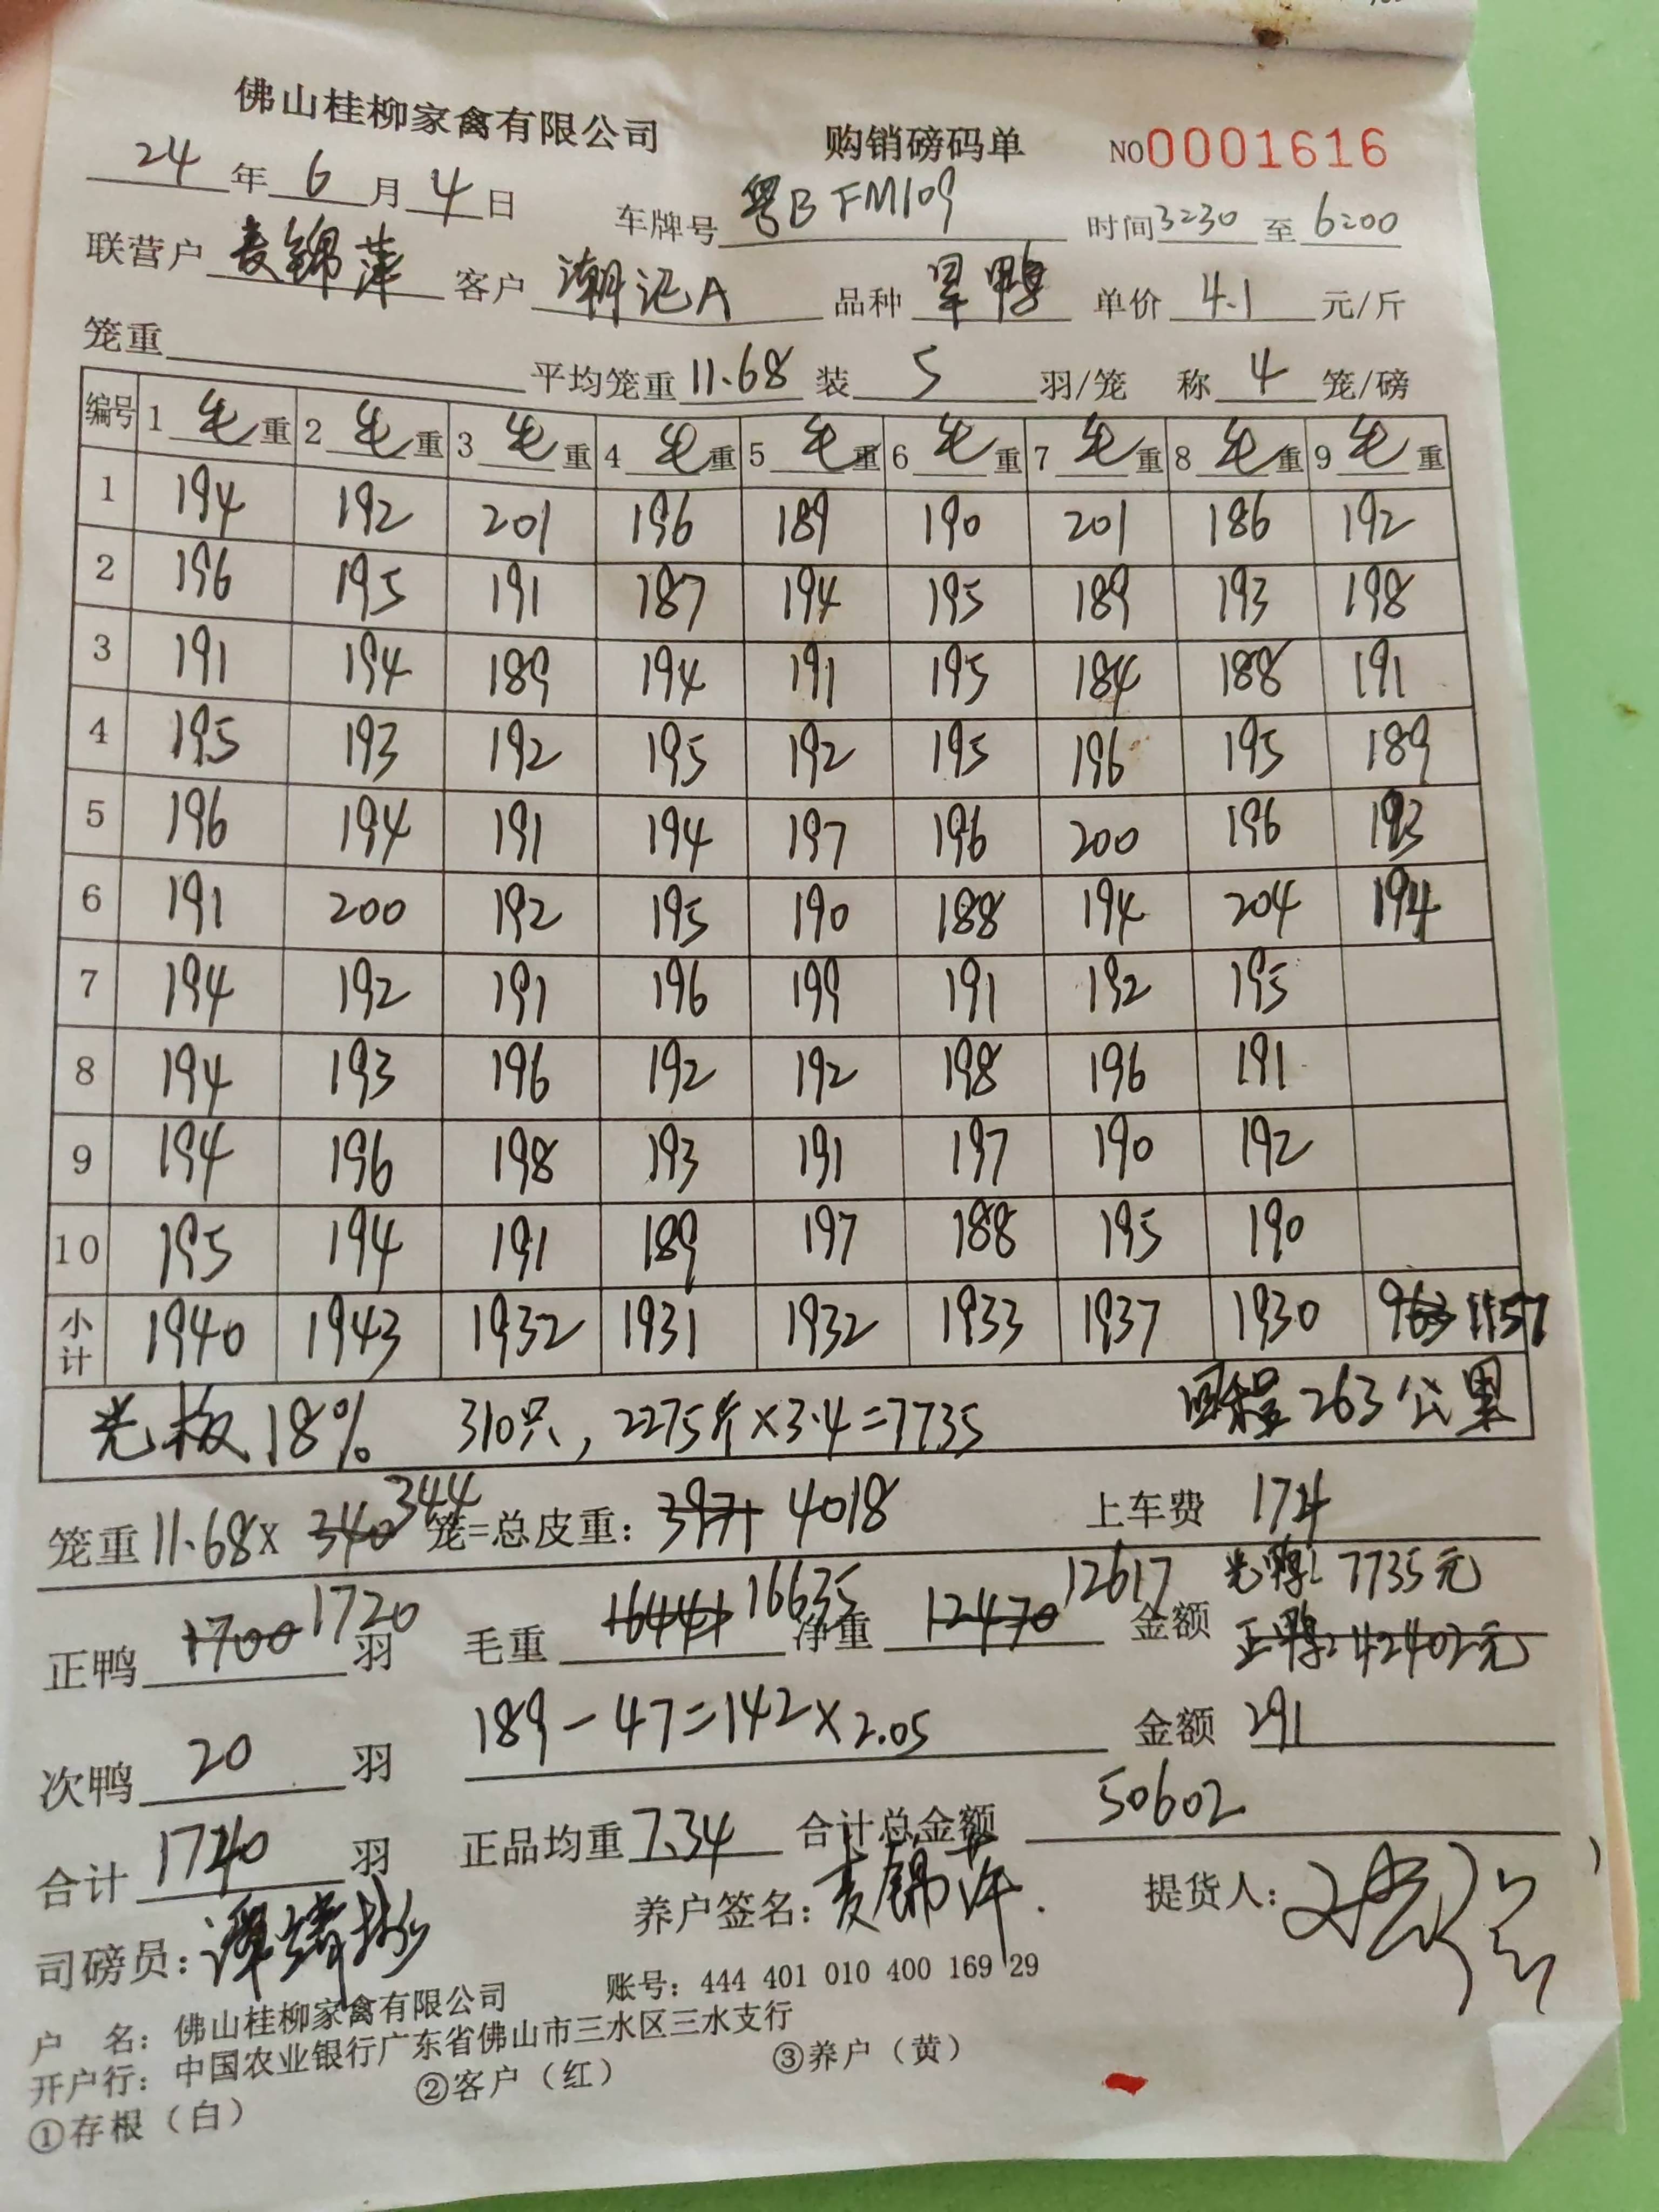 佛山桂柳家禽有限公司 购销磅码单 NO0001616
24年6月4日 车牌号 粤B FM109 时间 3:30 至 6:00
联营户 麦锦萍 客户 潮记A 品种 旱鸭 单价 4.1 元/斤
笼重 平均笼重 11.68 装 5 羽/笼 称 4 笼/磅
编号 1 毛重 2 毛重 3 毛重 4 毛重 5 毛重 6 毛重 7 毛重 8 毛重 9 毛重
1 194 192 201 196 189 190 201 186 192
2 196 195 191 187 194 195 189 193 198
3 191 194 189 194 191 195 184 188 191
4 195 193 192 195 192 195 196 195 189
5 196 194 191 194 197 196 200 196 193
6 191 200 192 195 190 188 194 204 194
7 194 192 191 196 199 191 192 195
8 194 193 196 192 192 198 196 191
9 194 196 198 193 191 197 190 192
10 195 194 191 189 197 188 195 190
小计 1940 1943 1932 1931 1932 1933 1937 1930 963 1157
光板18% 310只, 2275斤×3.4=7735 回程263公里
笼重 11.68× 340 344 笼=总皮重: 3971 4018 上车费 174
正鸭 1700 1720 羽 毛重 16441 16635 净重 12470 12617 金额 光鸭: 7735元
正鸭: 42402元
次鸭 20 羽 189-47=142×2.05 金额 291
合计 1740 羽 正品均重 7.34 合计总金额 50602
司磅员: 养户签名: 麦锦萍 提货人:
户 名: 佛山桂柳家禽有限公司 账号: 444 401 010 400 169 29
开户行: 中国农业银行广东省佛山市三水区三水支行
①存根(白) ②客户(红) ③养户(黄)